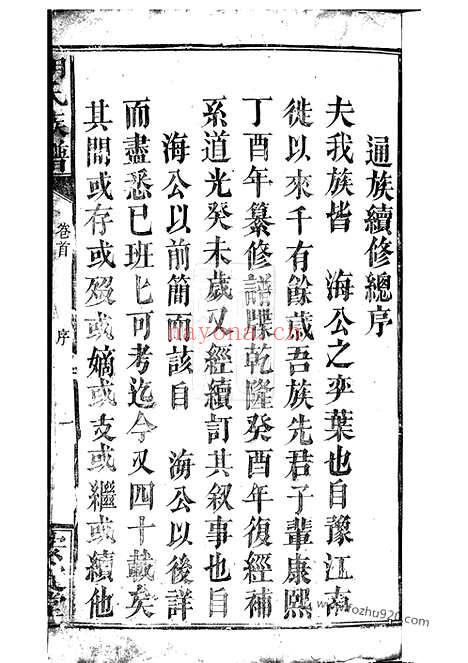 通族續修總序
夫我族皆 海公之奕葉也自豫江南
徙以來千有餘歲吾族先君子輩康熙
丁酉年纂修譜牒乾隆癸酉年復經補
系道光癸未歲又經續訂其叙事也自
海公以前簡而該自 海公以後詳
而盡悉已班匕可考迄今又四十載矣
其間或存或歿或嫡或支或繼或續他
氏族譜
卷首
序
一
hayona.cn
fozhu920.com